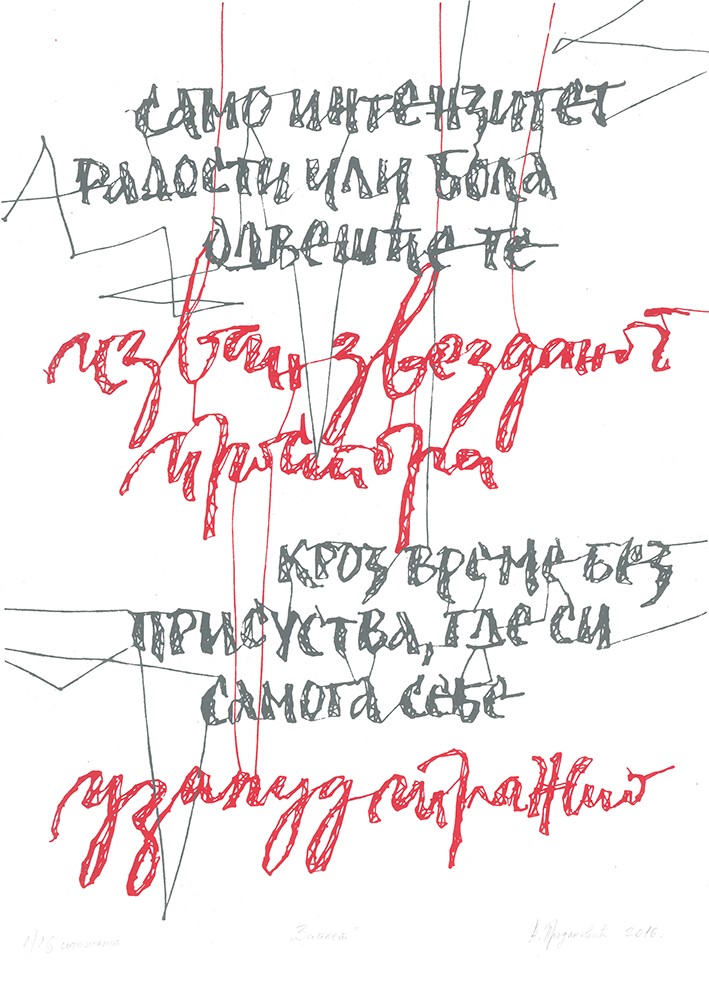 само интензитет
радости или бола
одвешће те
изван звезданог
простора
кроз време без
присуства, где си
самога себе
узалуд тражио
1/15 ситоштампа „Заплет“ 2016.